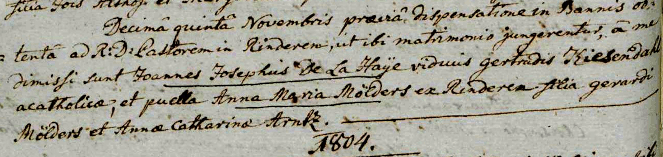 filia Jois
Decimâ quintâ Novembris praeviâ dispensatione in Bannis ob-
tenta ad R: D: Pastorem in Rinderen, ut ibi matrimonio jungerentur, â me
dimissi sunt Joannes Josephus De La Haije viduus gertrudis Kiesendahl
acatholicae, et puella Anna Maria Mölders ex Rinderen filia gerardi
Mölders et Annae Catharinae Arntz.
1804.